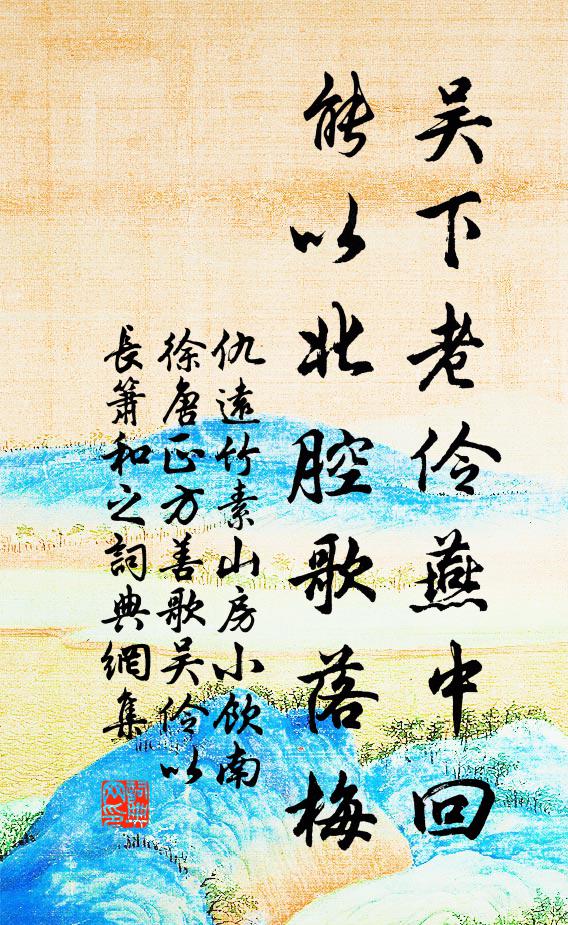 吴下老伶燕中回
能以北腔歌落梅
仇遠竹素山房小飲南
徐唐正方善歌吴伶以
長簫和之詞典網集
詞典